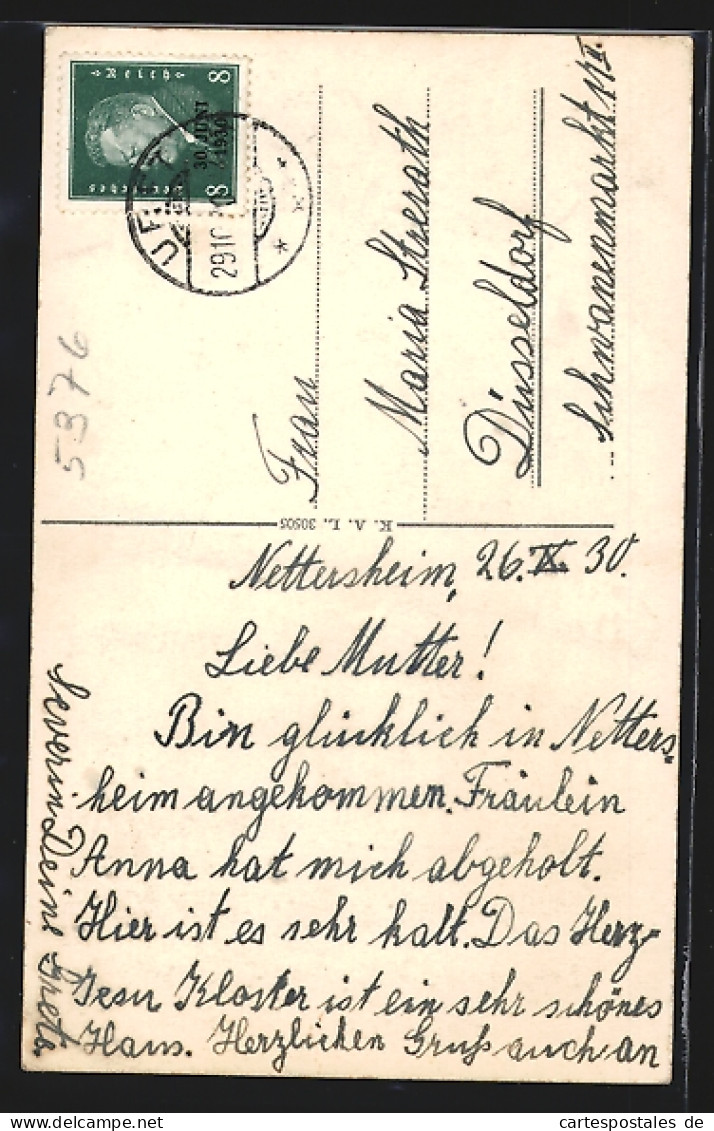 Deutsches Reich
8 8
30. JUNI
1930
URFT
29.10.
5376
Frau
Maria Streerath
Düsseldorf
Schwanenmarkt 11 II
K. A. L. 30505
Nettersheim, 26. X. 30.
Liebe Mutter!
Bin glücklich in Netters=
heim angekommen. Fräulein
Anna hat mich abgeholt.
Hier ist es sehr kalt. Das Herz-
Jesu Kloster ist ein sehr schönes
Haus. Herzlichen Gruß auch an
Severin Deine Grete
cartespostales de